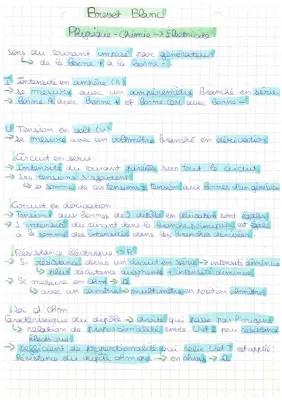 Brevet Blanc
Physique-Chimie → Électricité
sens du courant imposé par générateur
↳ de la borne + à la borne -
I Intensité en ampère (A)
→ se mesure avec un ampèremètre branché en série
→ borne A avec borne + et borne COM avec borne -
U Tension en volt (V)
→ se mesure avec un voltmètre branché en dérivation
Circuit en série
→ Intensité du courant pareille sur tout le circuit
→ Les tensions s'ajoutent
↳ la somme de ces tensions = tension aux bornes d'un générateur
Circuit en dérivation
→ Tensions aux bornes de 2 dipôles en dérivation sont égales
→ L'intensité du circuit dans la branche principale est égale
à la somme des intensités dans les branches dérivées
Résistance électrique → R
→ Si résistance dans un circuit en série → intensité diminue
↳ plus résistance augmente + intensité diminue
→ Se mesure en ohm → Ω
↳ avec un ohmmètre = multimètre en position ohmètre
Loi d'Ohm
Caractéristique du dipôle → droite qui passe par l'origine
↳ relation de proportionnalité entre U et I pour résistance
électrique
→ coefficient de proportionnalité qui relie U et I est appelé :
Résistance du dipôle ohmique → en ohms → Ω